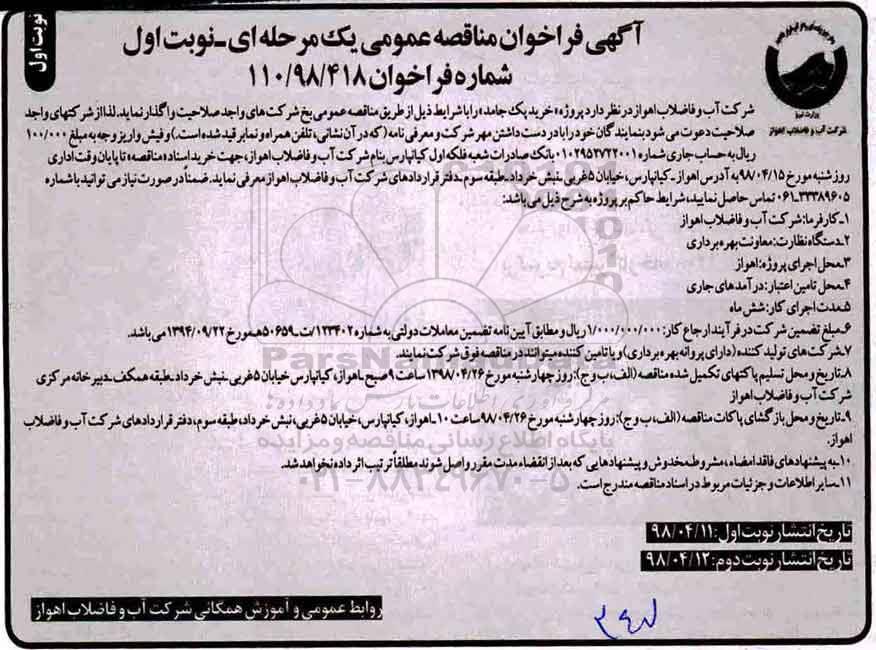 نوبت اول
آگهی فراخوان مناقصه عمومی یک مرحله ای ـ نوبت اول
شماره فراخوان ۱۱۰/۹۸/۴۱۸
وزارت نیرو
شرکت آب و فاضلاب اهواز
شرکت آب و فاضلاب اهواز در نظر دارد پروژه «خرید پک جامد» را با شرایط ذیل از طریق مناقصه عمومی بخ شرکت های واجد صلاحیت واگذار نماید. لذا از شرکتهای واجد
صلاحیت دعوت می شود بنمایندگان خود را با در دست داشتن مهر شرکت و معرفی نامه (که در آن نشانی، تلفن همراه و نمابر قید شده است.) و فیش واریز وجه به مبلغ ۱۰۰/۰۰۰
ریال به حساب جاری شماره ۰۱۰۲۹۵۳۷۲۲۰۰۱ بانک صادرات شعبه فلکه اول کیانپارس بنام شرکت آب و فاضلاب اهواز، جهت خرید اسناد «مناقصه» تا پایان وقت اداری
روز شنبه مورخ ۹۸/۰۴/۱۵ به آدرس اهواز ـ کیانپارس، خیابان ۵ غربی ـ نبش خرداد ـ طبقه سوم ـ دفتر قراردادهای شرکت آب و فاضلاب اهواز معرفی نماید. ضمناً در صورت نیاز می توانید با شماره
۰۶۱-۳۳۳۸۹۶۰۵ تماس حاصل نمایید، شرایط حاکم بر پروژه به شرح ذیل می باشد:
۱ـ کارفرما: شرکت آب و فاضلاب اهواز
۲ـ دستگاه نظارت: معاونت بهره برداری
۳ـ محل اجرای پروژه: اهواز
۴ـ محل تامین اعتبار: درآمدهای جاری
۵ـ مدت اجرای کار: شش ماه
۶ـ مبلغ تضمین شرکت در فرآیند ارجاع کار: ۱/۰۰۰/۰۰۰/۰۰۰ ریال و مطابق آیین نامه تضمین معاملات دولتی به شماره ۱۲۳۴۰۲/ت ـ ۵۰۶۵۹هـ مورخ ۱۳۹۴/۰۹/۲۲ می باشد.
۷ـ شرکت های تولید کننده (دارای پروانه بهره برداری) و یا تامین کننده میتوانند در مناقصه فوق شرکت نمایند.
۸ـ تاریخ و محل تسلیم پاکتهای تکمیل شده مناقصه (الف، ب و ج): روز چهارشنبه مورخ ۱۳۹۸/۰۴/۲۶ ساعت ۹ صبح ـ اهواز، کیانپارس خیابان ۵ غربی ـ نبش خرداد ـ طبقه همکف ـ دبیرخانه مرکزی
شرکت آب و فاضلاب اهواز
۹ـ تاریخ و محل بازگشای پاکات مناقصه (الف، ب و ج): روز چهارشنبه مورخ ۹۸/۰۴/۲۶ ساعت ۱۰ ـ اهواز، کیانپارس، خیابان ۵ غربی، نبش خرداد، طبقه سوم، دفتر قراردادهای شرکت آب و فاضلاب
اهواز.
۱۰ـ به پیشنهادهای فاقد امضاء، مشروط، مخدوش و پیشنهادهایی که بعد از انقضاء مدت مقرر واصل شوند مطلقاً ترتیب اثر داده نخواهد شد.
۱۱ـ سایر اطلاعات و جزئیات مربوط در اسناد مناقصه مندرج است.
ParsNamadData
مرکز فرآوری اطلاعات پارس نماد داده ها
پایگاه اطلاع رسانی مناقصه و مزایده
۰۲۱-۸۸۳۴۹۶۷۰-۵
تاریخ انتشار نوبت اول: ۹۸/۰۴/۱۱
تاریخ انتشار نوبت دوم: ۹۸/۰۴/۱۲
روابط عمومی و آموزش همگانی شرکت آب و فاضلاب اهواز